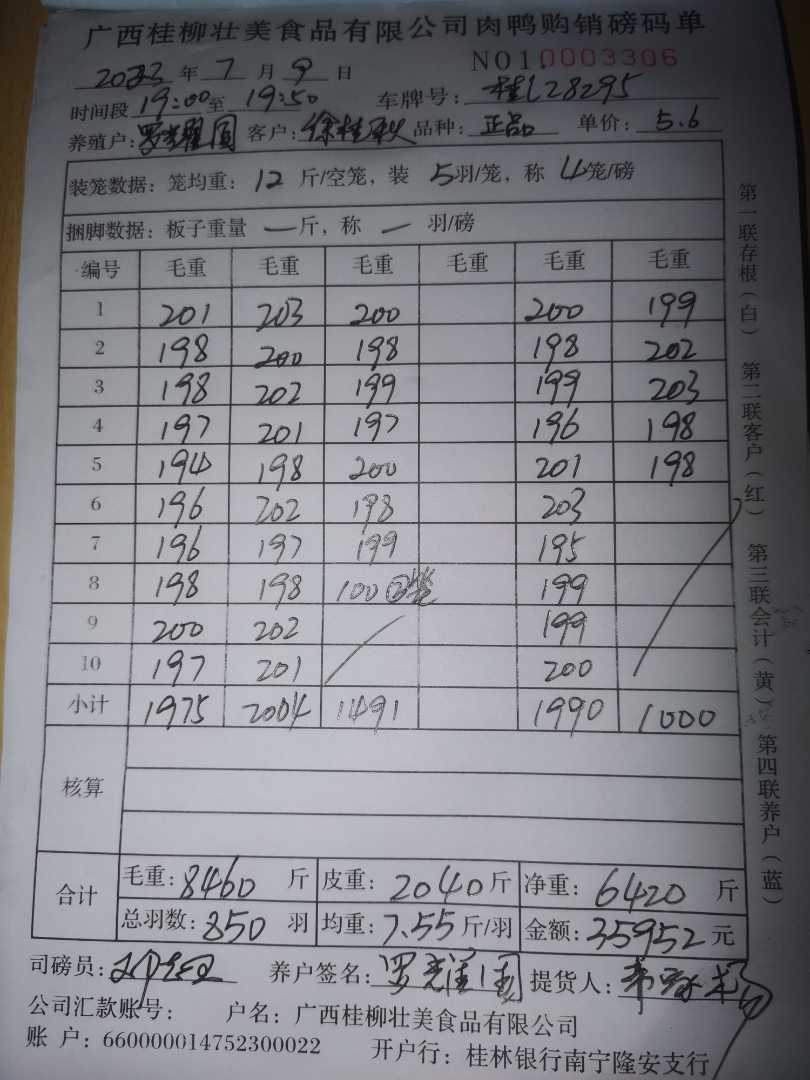 广西桂柳壮美食品有限公司肉鸭购销磅码单
NO1.0003306
2023年7月9日
时间段19:00至19:50 车牌号:桂L28295
养殖户:罗耀国 客户:徐桂秋 品种:正品 单价:5.6
装笼数据:笼均重:12斤/空笼,装5羽/笼,称4笼/磅
捆脚数据:板子重量一斤,称一羽/磅
编号 毛重 毛重 毛重 毛重 毛重 毛重
1 201 203 200 200 199
2 198 200 198 198 202
3 198 202 199 199 203
4 197 201 197 196 198
5 194 198 200 201 198
6 196 202 198 203
7 196 197 199 195
8 198 198 100②笼 199
9 200 202 199
10 197 201 200
小计 1975 2004 1491 1990 1000
核算
合计 毛重:8460斤 皮重:2040斤 净重:6420斤
总羽数:850羽 均重:7.55斤/羽 金额:35952元
司磅员: 养户签名: 提货人:
公司汇款账号: 户名:广西桂柳壮美食品有限公司
账户:660000014752300022 开户行:桂林银行南宁隆安支行
第一联存根(白) 第二联客户(红) 第三联会计(黄) 第四联养户(蓝)